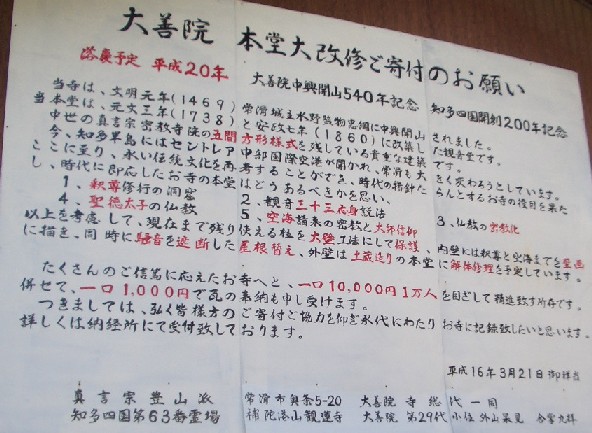 大善院 本堂大改修ご寄付のお願い
落慶予定 平成20年 大善院中興開山540年記念 知多四国開創200年記念
当寺は、文明元年(1469)常滑城主水野監物忠綱に中興開山されました。
当本堂は、元文三年(1738)と安政七年(1860)に改築した観音堂です。
中世の真言宗密教寺院の五間方形様式を残している貴重な建築です。
今、知多半島にはセントレア中部国際空港が開かれ、常滑も大きく変わろうとしています。
ここに至り、永い伝統文化を再考することができ、時代の指針たらんとするお寺の役目を果た
し、時代に即応したお寺の本堂はどうあるべきかを思い、
1、釈尊修行の洞窟 2、観音三十三応身説法 3、仏教の密教化
4、聖徳太子の仏教 5、空海請来の密教と大師信仰
以上を考慮して、現在まで残り使える柱を大壁工法にして保護、内壁には釈尊と空海までを壁画
に描き、同時に騒音を遮断した屋根替え、外壁は土蔵造りの本堂に解体修理を予定しています。
たくさんのご信篤に応えたお寺へと、一口10,000円1万人を目ざして精進致す所存です。
併せて、一口1,000円で瓦の奉納も申し受けます。
つきましては、弘く皆様方のご寄付ご協力を仰ぎ永代にわたりお寺に記録致したいと思います。
詳しくは納経所にて受付致しております。
平成16年3月21日
真言宗豊山派 常滑市奥条5-20 大善院 寺総代一同
知多四国第63番霊場 補陀落山観蓮寺 大善院 第29代